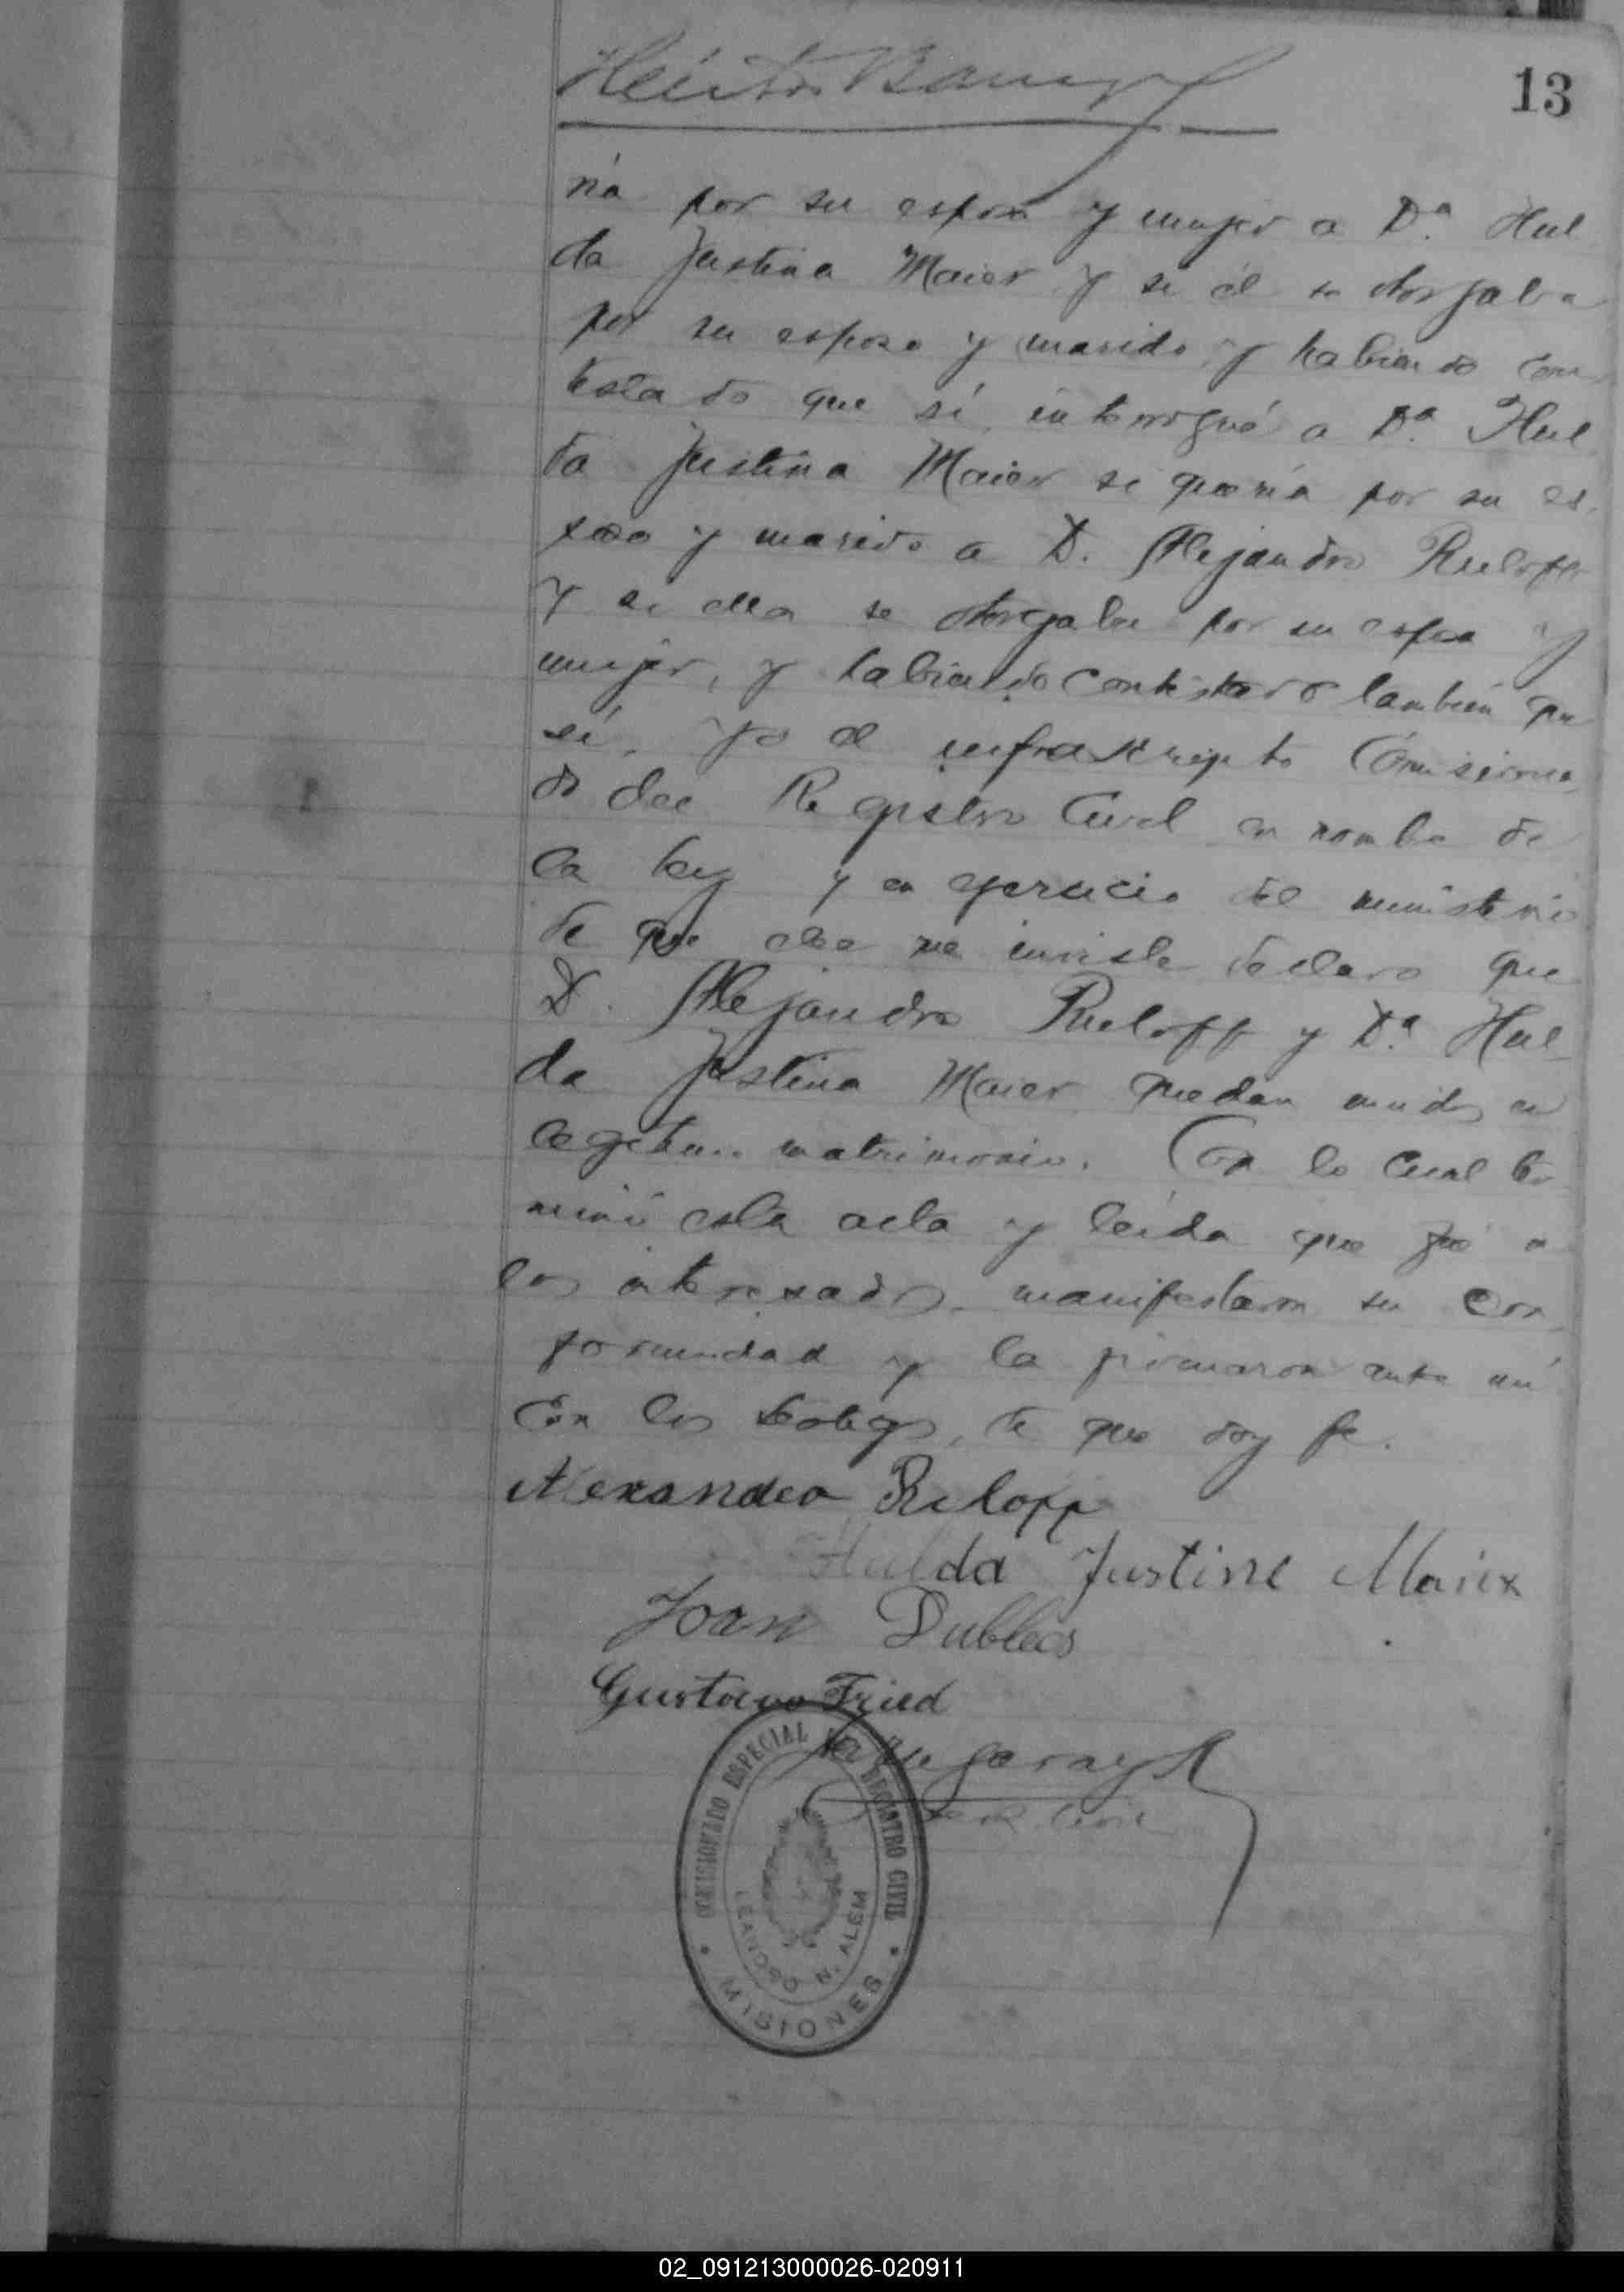 13
Héctor
ría por su esposa y mujer a Dª. Hul
da Justina Maier y si él se otorgaba
por su esposo y marido y habiendo con
testado que sí, interrogué a Dª. Hul
da Justina Maier si quería por su es
poso y marido a D. Alejandro Ruloff
y si ella se otorgaba por su esposa y
mujer, y habiendo contestado también que
sí, yo el infrascripto Comisiona
do del Registro Civil en nombre de
la ley y en ejercicio del ministerio
de que ella me inviste declaro que
D. Alejandro Ruloff y Dª. Hul
da Justina Maier quedan unidos en
legítimo matrimonio. Con lo cual ter
minó esta acta y leída que fué a
los interesados, manifestaron su con
formidad y la firmaron ante mí
con los testigos, de que doy fe.
Alexandro Ruloff
Hulda Justine Maier
Joan Dublecs
Gustavo Fried
COMISIONADO ESPECIAL DEL REGISTRO CIVIL
LEANDRO N. ALEM
MISIONES
02_091213000026-020911